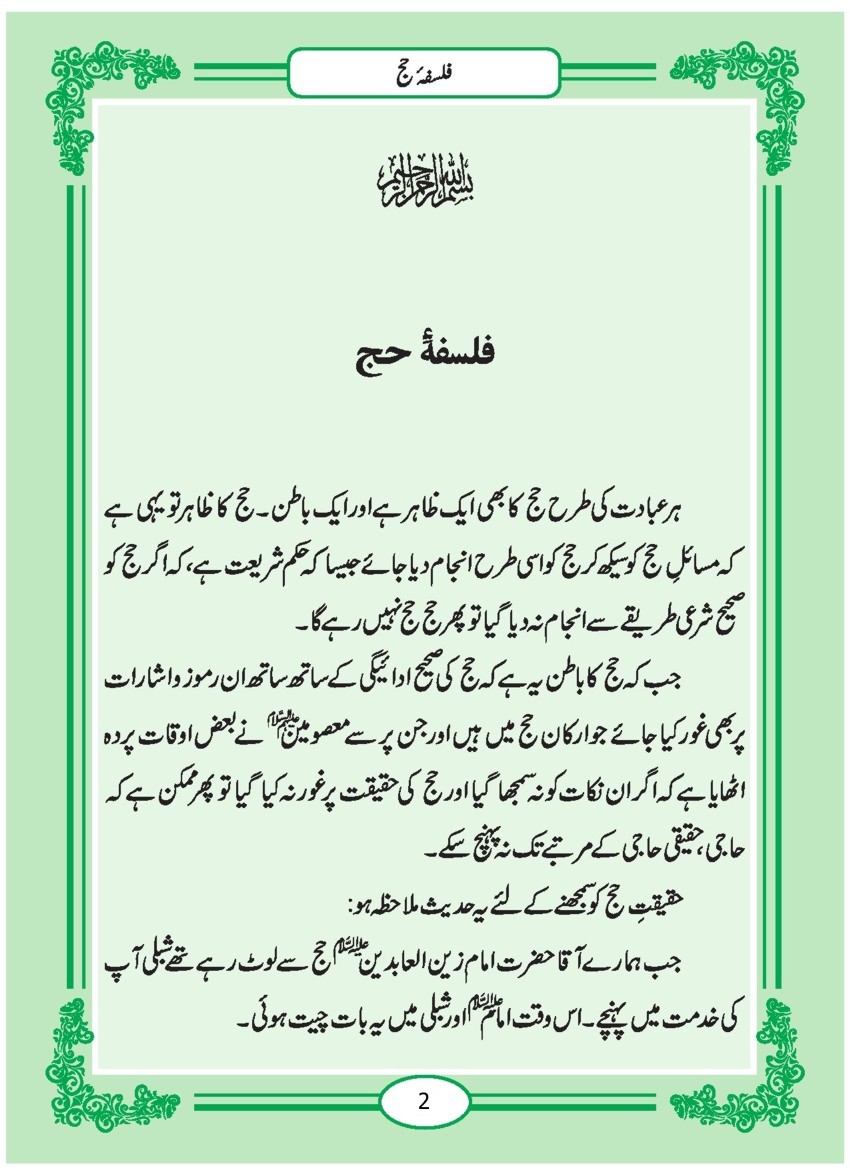 فلسفۂ حج
بسم اللہ الرحمن الرحیم
فلسفۂ حج
ہر عبادت کی طرح حج کا بھی ایک ظاہر ہے اور ایک باطن۔ حج کا ظاہر تو یہی ہے
کہ مسائلِ حج کو سیکھ کر حج کو اسی طرح انجام دیا جائے جیسا کہ حکم شریعت ہے، کہ اگر حج کو
صحیح شرعی طریقے سے انجام نہ دیا گیا تو پھر حج حج نہیں رہے گا۔
جب کہ حج کا باطن یہ ہے کہ حج کی صحیح ادائیگی کے ساتھ ساتھ ان رموز و اشارات
پر بھی غور کیا جائے جو ارکان حج میں ہیں اور جن پر سے معصومین علیہم السلام نے بعض اوقات پردہ
اٹھایا ہے کہ اگر ان نکات کو نہ سمجھا گیا اور حج کی حقیقت پر غور نہ کیا گیا تو پھر ممکن ہے کہ
حاجی، حقیقی حاجی کے مرتبے تک نہ پہنچ سکے۔
حقیقتِ حج کو سمجھنے کے لئے یہ حدیث ملاحظہ ہو:
جب ہمارے آقا حضرت امام زین العابدین علیہ السلام حج سے لوٹ رہے تھے شبلی آپ
کی خدمت میں پہنچے۔ اس وقت امام علیہ السلام اور شبلی میں یہ بات چیت ہوئی۔
2